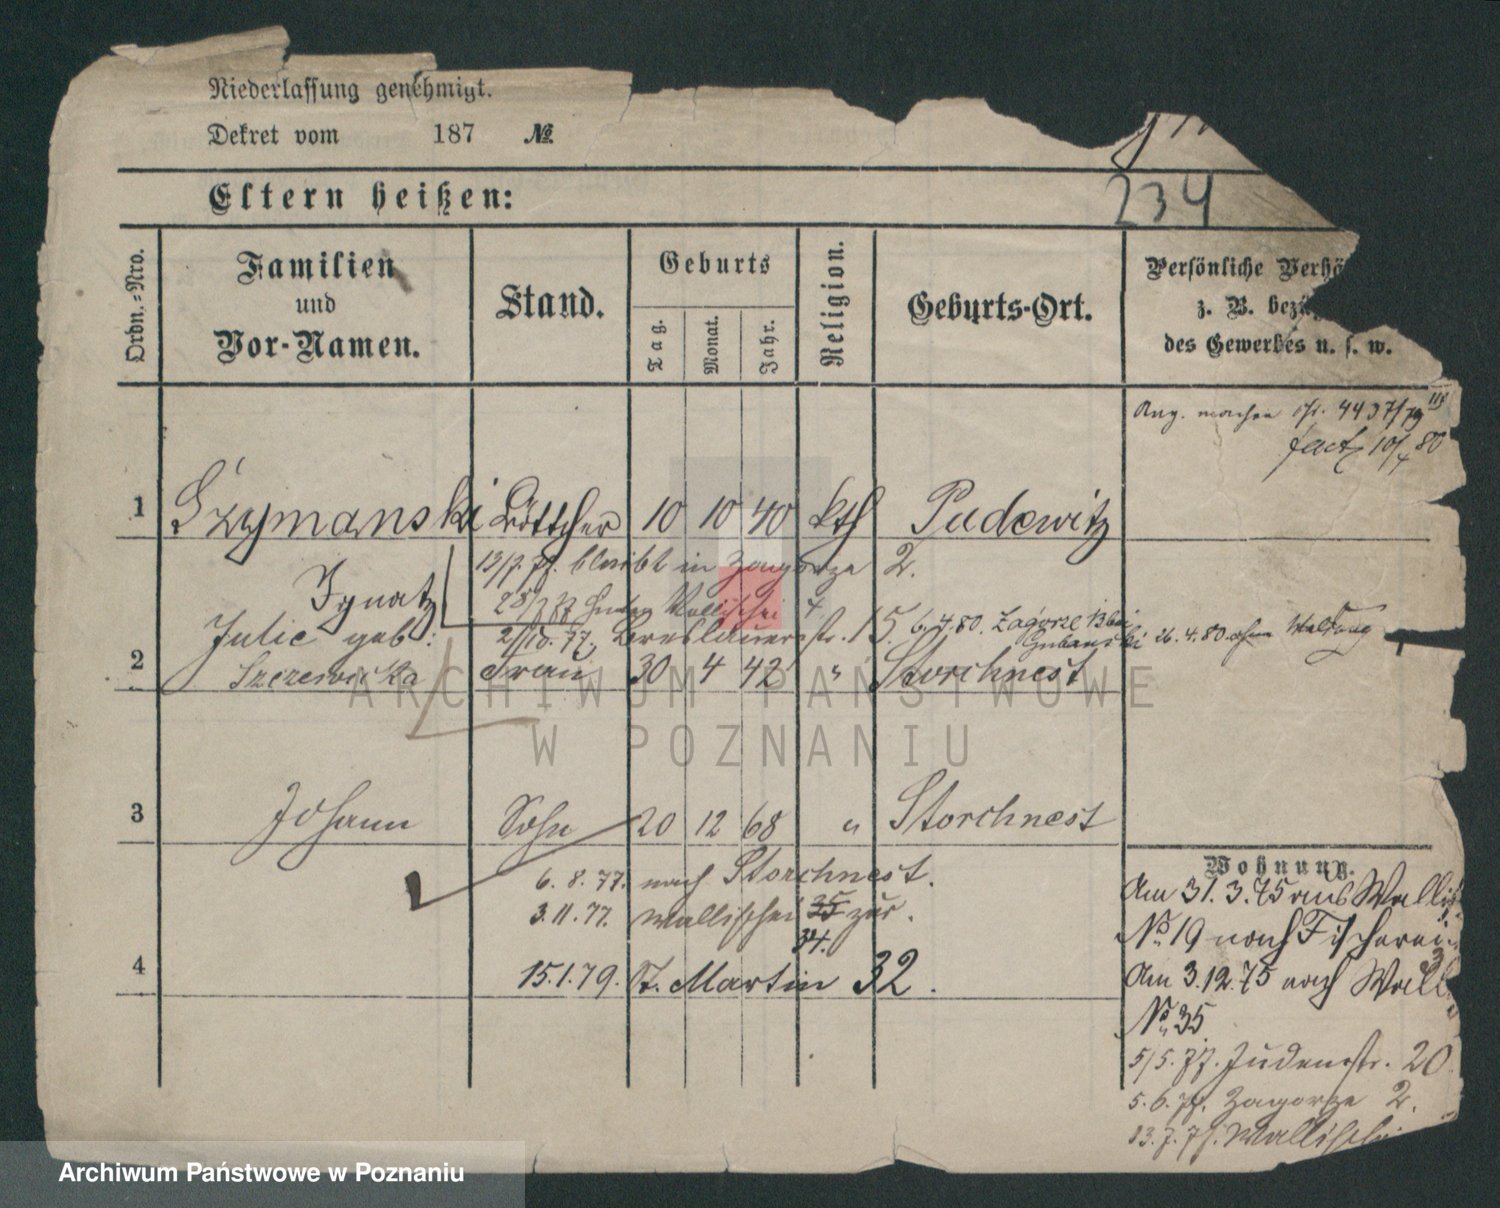 Niederlassung genehmigt.
Dekret vom 187 №
234
Eltern heißen:
Ordn.-Nro.
Familien und Vor-Namen.
Stand.
Geburts
Tag.
Monat.
Jahr.
Religion.
Geburts-Ort.
Persönliche Verhä
z. B. bezü
des Gewerbes u. s. w.
4437/79
10/4 80
1 Szymanski Böttcher 10 10 40 kth Pudewitz
Ignatz
13/7. 77. bleibt in Zagorze 2.
Wallischei 4
2/10. 77. Breslauerstr. 15. 6.4.80. Zagorze 13 bei
26.4.80 ohne Meldung
Julie geb:
2 Szczewicka Frau 30 4 42 " Storchnest
3 Johann Sohn 20 12 68 " Storchnest
6. 8. 77. nach Storchnest.
3. 11. 77. Wallischei 35 zur.
34.
4 15.1.79. St. Martin 32.
Wohnung.
Am 31. 3. 75 aus Walli
No 19 nach Fischerei
3
Am 3.12.75 nach Wall
No 35
5/5. 77. Judenstr. 20
5. 6. 77. Zagorze 2.
13. 7. 77. Wallischei
ARCHIWUM PAŃSTWOWE
W POZNANIU
Archiwum Państwowe w Poznaniu